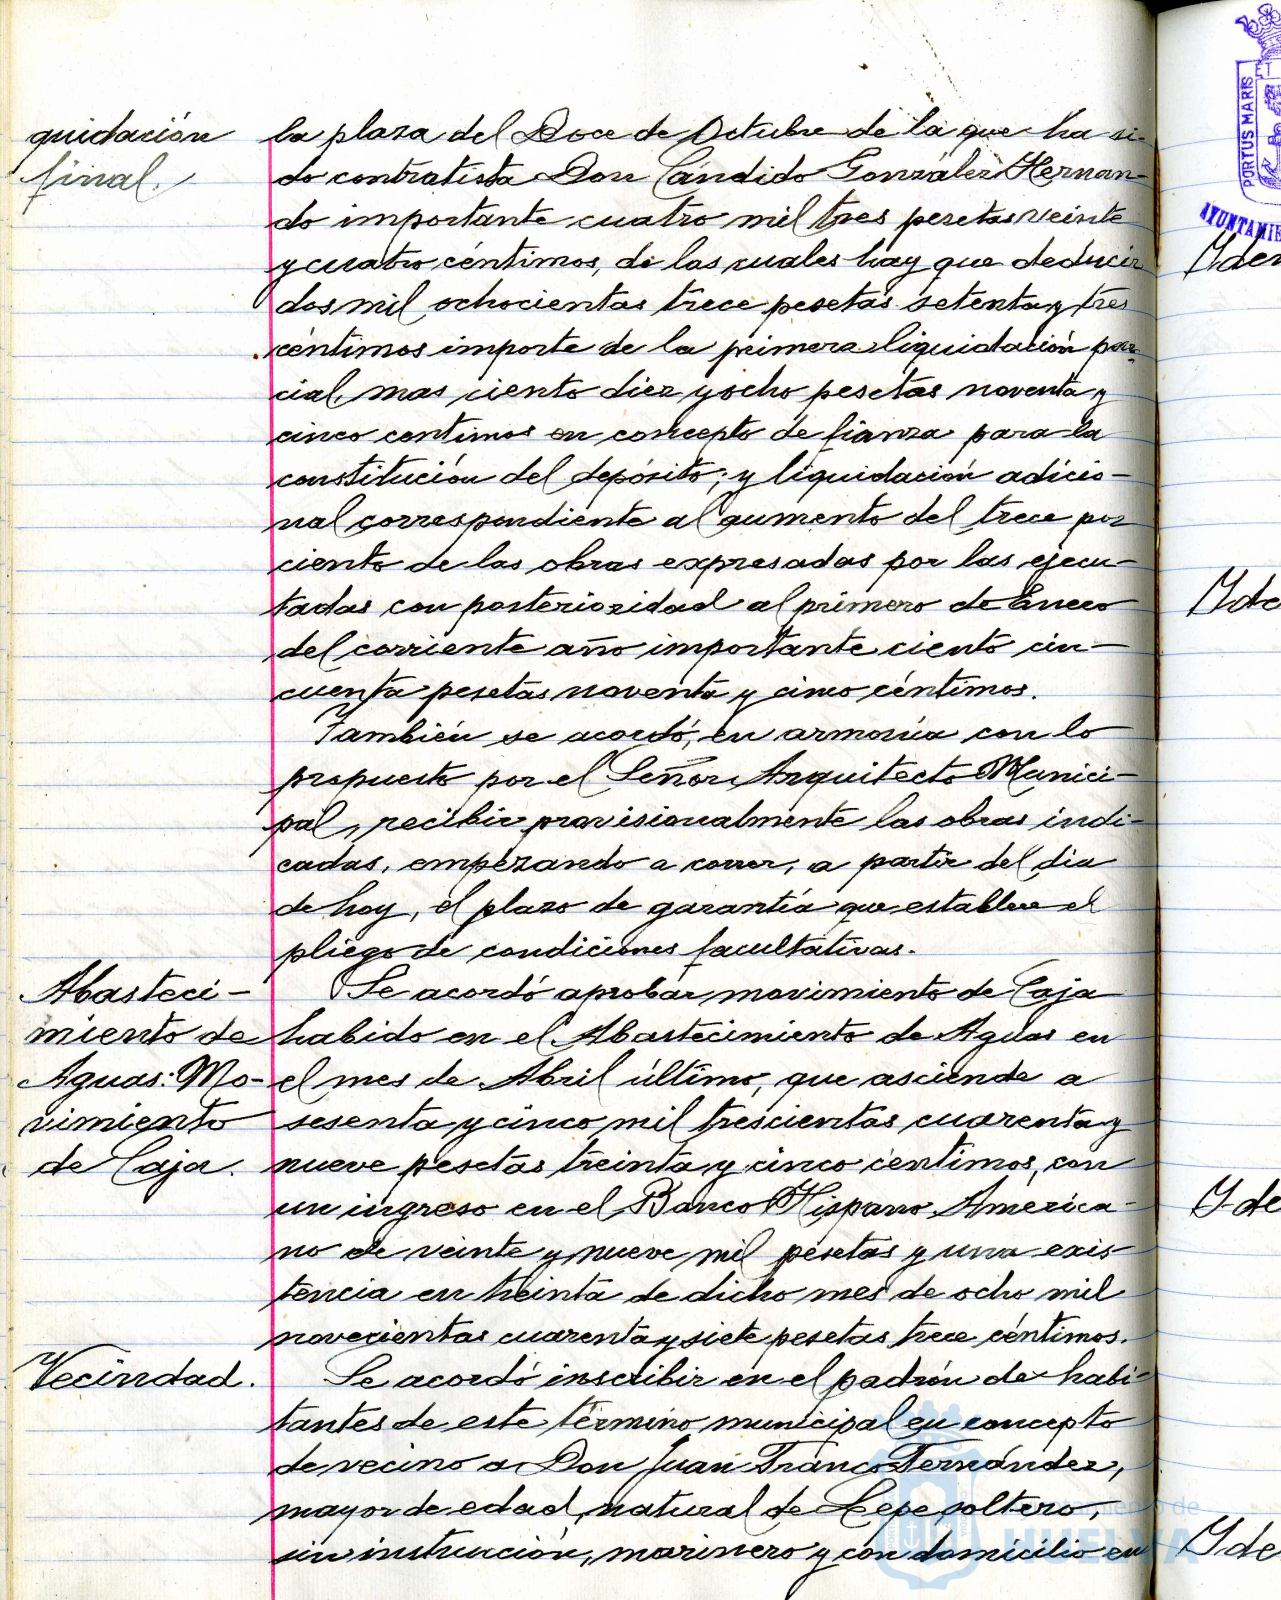 quidación
final.
la plaza del Doce de Octubre de la que ha si-
do contratista Don Cándido González Hernan-
do importante cuatro mil tres pesetas veinte
y cuatro céntimos, de las cuales hay que deducir
dos mil ochocientas trece pesetas setenta y tres
céntimos importe de la primera liquidación par-
cial, mas ciento diez y ocho pesetas noventa y
cinco centimos en concepto de fianza para la
constitución del depósito; y liquidación adicio-
nal correspondiente al aumento del trece por
ciento de las obras expresadas por las ejecu-
tadas con posterioridad al primero de Enero
del corriente año importante ciento cin-
cuenta pesetas noventa y cinco céntimos.
También se acordó, en armonía con lo
propuesto por el Señor Arquitecto Munici-
pal, recibir provisionalmente las obras indi-
cadas, empezando a correr, a partir del dia
de hoy, el plazo de garantía que establece el
pliego de condiciones facultativas.
Abasteci-
miento de
Aguas: Mo-
vimiento
de Caja.
Se acordó aprobar movimiento de Caja
habido en el Abastecimiento de Aguas en
el mes de Abril último, que asciende a
sesenta y cinco mil trescientas cuarenta y
nueve pesetas treinta y cinco céntimos, con
un ingreso en el Banco Hispano America-
no de veinte y nueve mil pesetas y una exis-
tencia en treinta de dicho mes de ocho mil
novecientas cuarenta y siete pesetas trece céntimos.
Vecindad.
Se acordó inscribir en el padrón de habi-
tantes de este término municipal en concepto
de vecino a Don Juan Franco Fernández,
mayor de edad, natural de Lepe soltero,
sin instrucción, marinero y con domicilio en
PORTUS MARIS
HUELVA